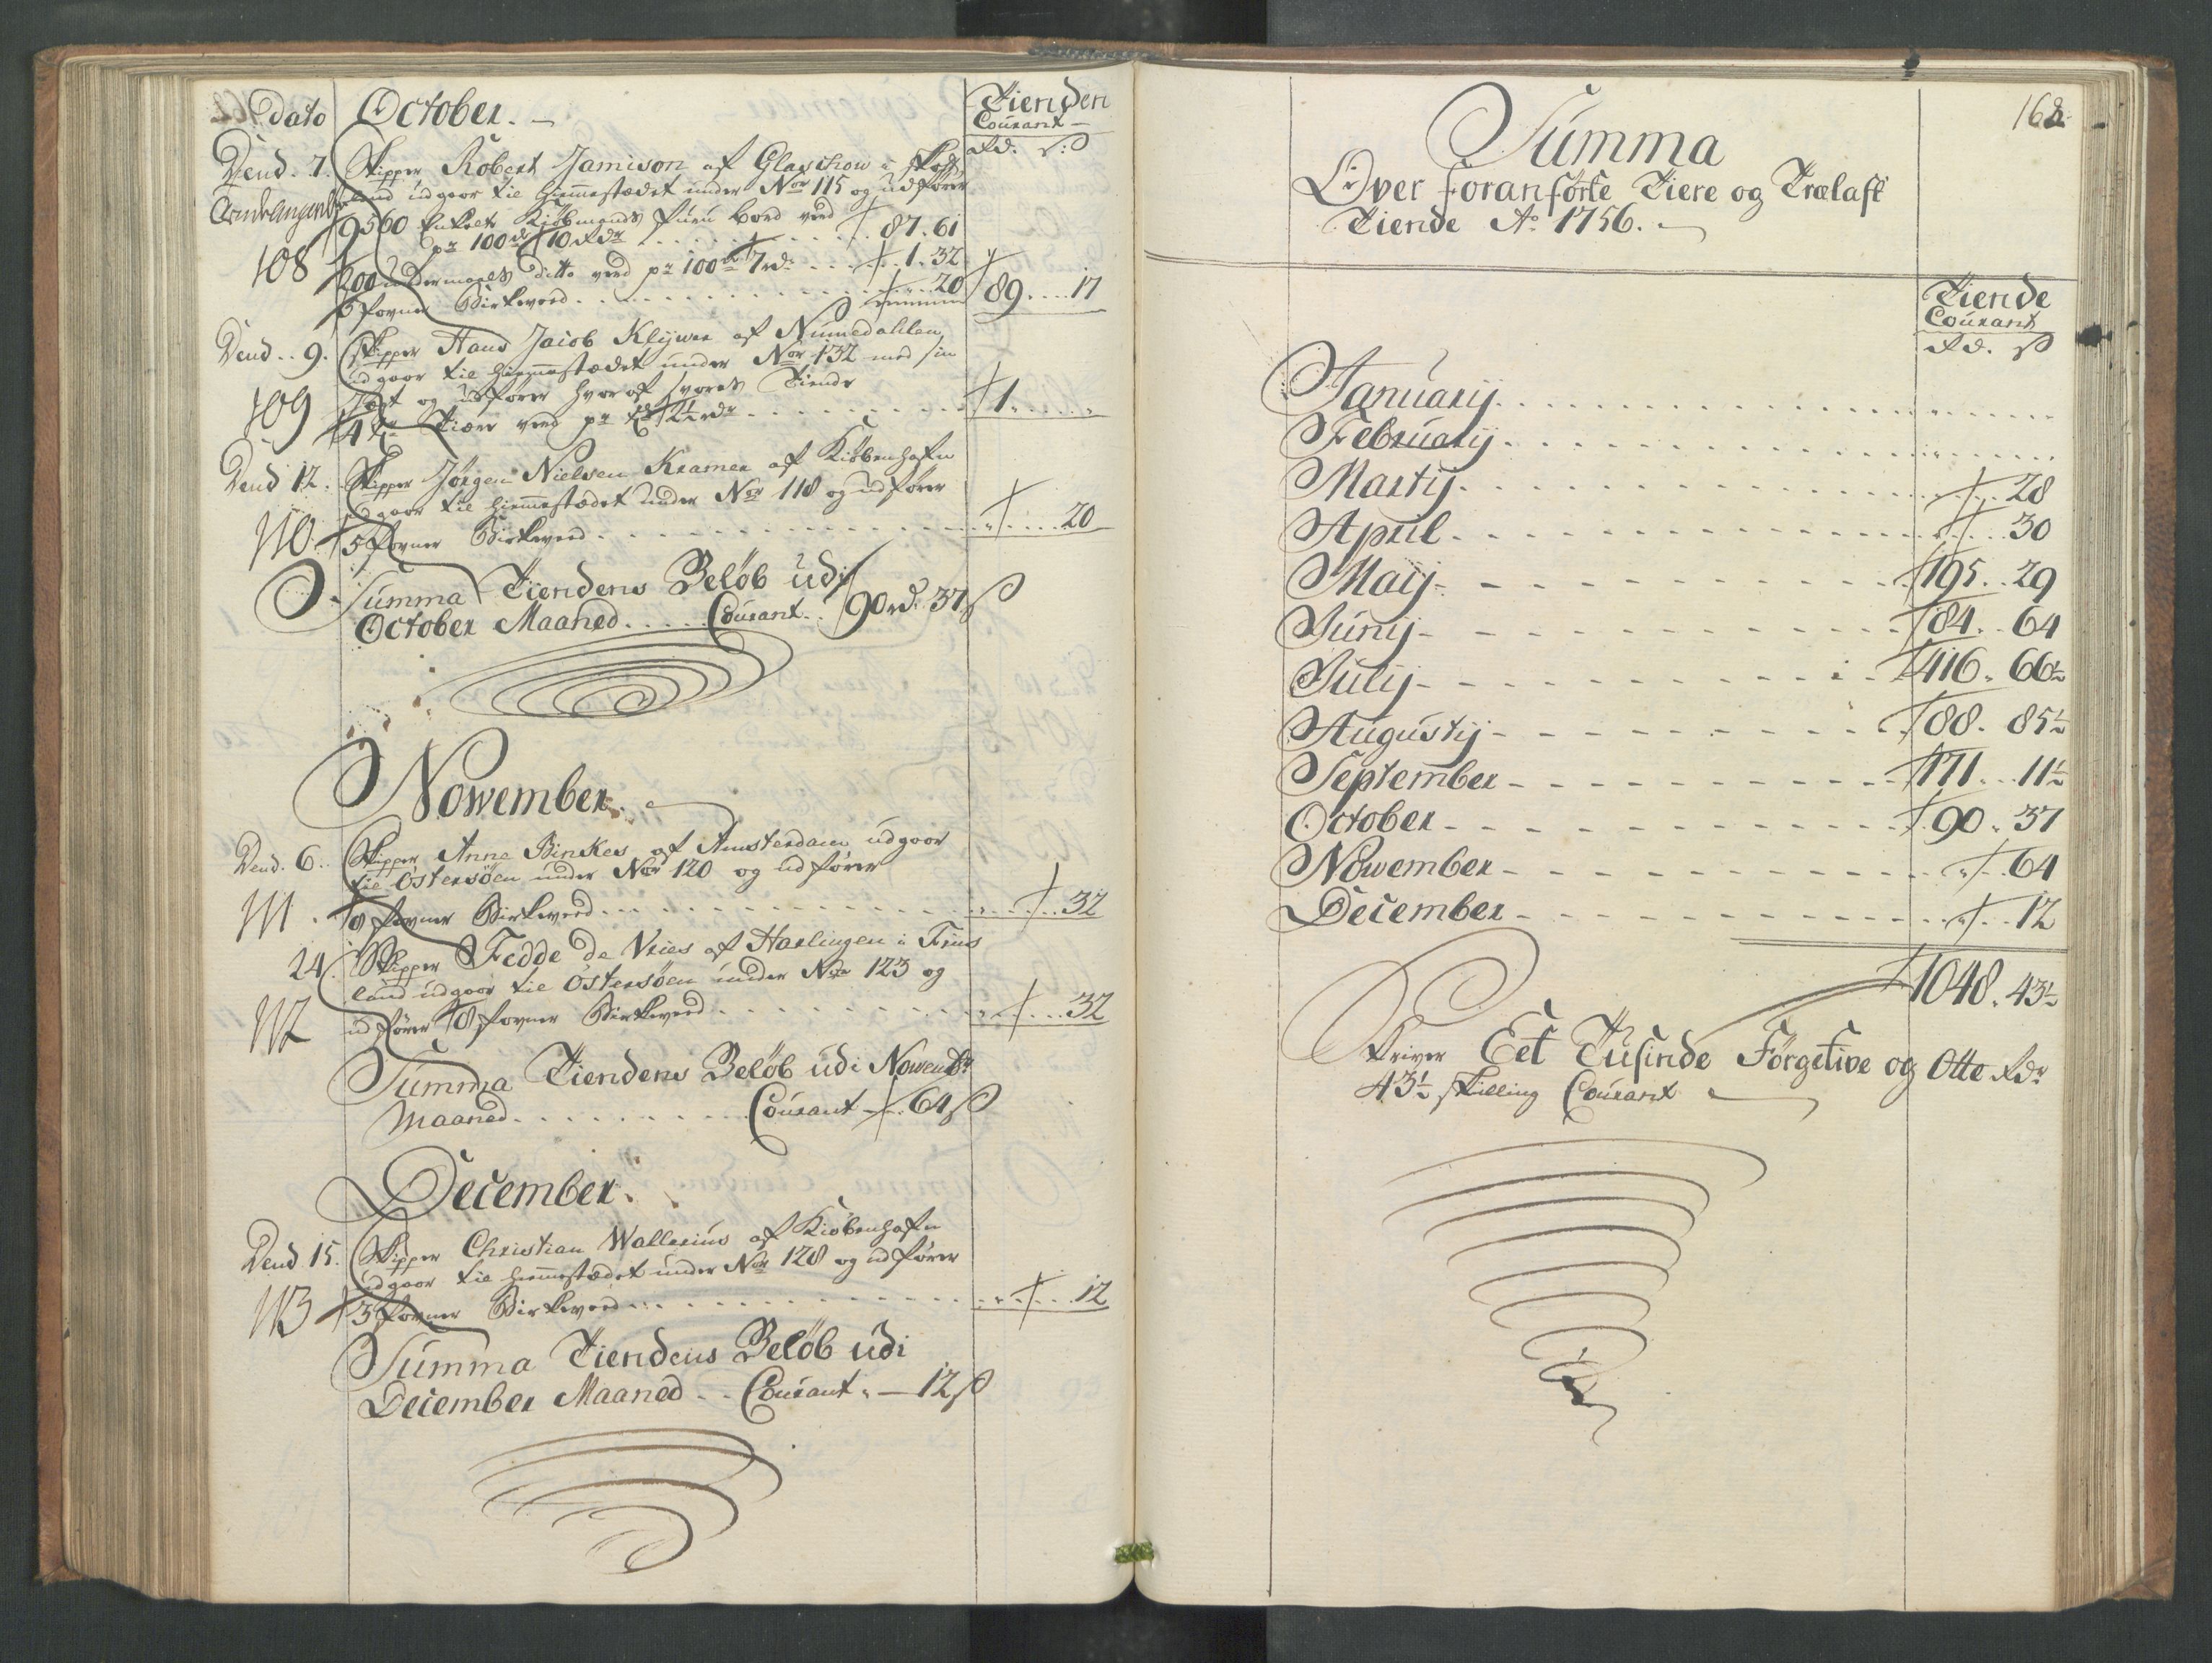 dato October. Tienden
Courant
Rd. ß
Dend. 7. Skipper Robert Jamison af Glaschow i Skot¬
land udgaar til Hiemmestædet under Nor 115 og udfører
9560 Enkelt Kiöbmands furu bord verd
pr 100de 10 Rdr 87. 61
108 200 undermaals ditto verd pr 100de 7 rd. 1. 32
5 favner Birkeveed 20 89 17
Dend. 9. Skipper Hans Jacob Klÿwer af Numedahlen
udgaar til Hiemmestædet under Nor 132 med sin
Jægt og udfører hvoraf svares Tiende
109 4 Tr Tiære verd pr Tr 2½ rdr 1
Dend 12. Skipper Jörgen Nielsen Kramer af Kiöbenhafn
udgaar til Hiemmestædet under Nor 118 og udfører
110 5 favner Birkeveed 20
Summa Tiendens Beløb udi
October Maaned Courant 90 rd. 37 ß
Nowember.
Dend. 6. Skipper Anne Binkes af Amsterdam udgaar
til Östersöen under Nor 120 og udfører
111. 8 favner Birkeveed 32
24. Skipper Fedde de Vries af Harlingen i Friis
land udgaar til Östersöen under Nor 123 og
112 udfører 8 favner Birkeveed 32
Summa Tiendens Beløb udi Nowembr
Maaned Courant 64 ß
December.
Dend 15. Skipper Christian Wallerius af Kiöbenhafn
udgaar til Hiemmestædet under Nor 128 og udfører
113 3 favner Birkeveed 12
Summa Tiendens Beløb udi
December Maaned Courant 12 ß
162
Summa
Over foranførte Tiere og Trælast
Tiende Ao 1756.
Tiende
Courant
Rd. ß
Januarij
Februarij
Martij 28
April 30
Maij 195. 29
Junij 84. 64
Julij 416. 66½
Augustij 88. 85½
September 171. 11½
October 90. 37
Nowember 64
December 12
1048. 43½
Skriver Eet Tusinde Förgetive og Otte Rdr
43½ skilling Courant